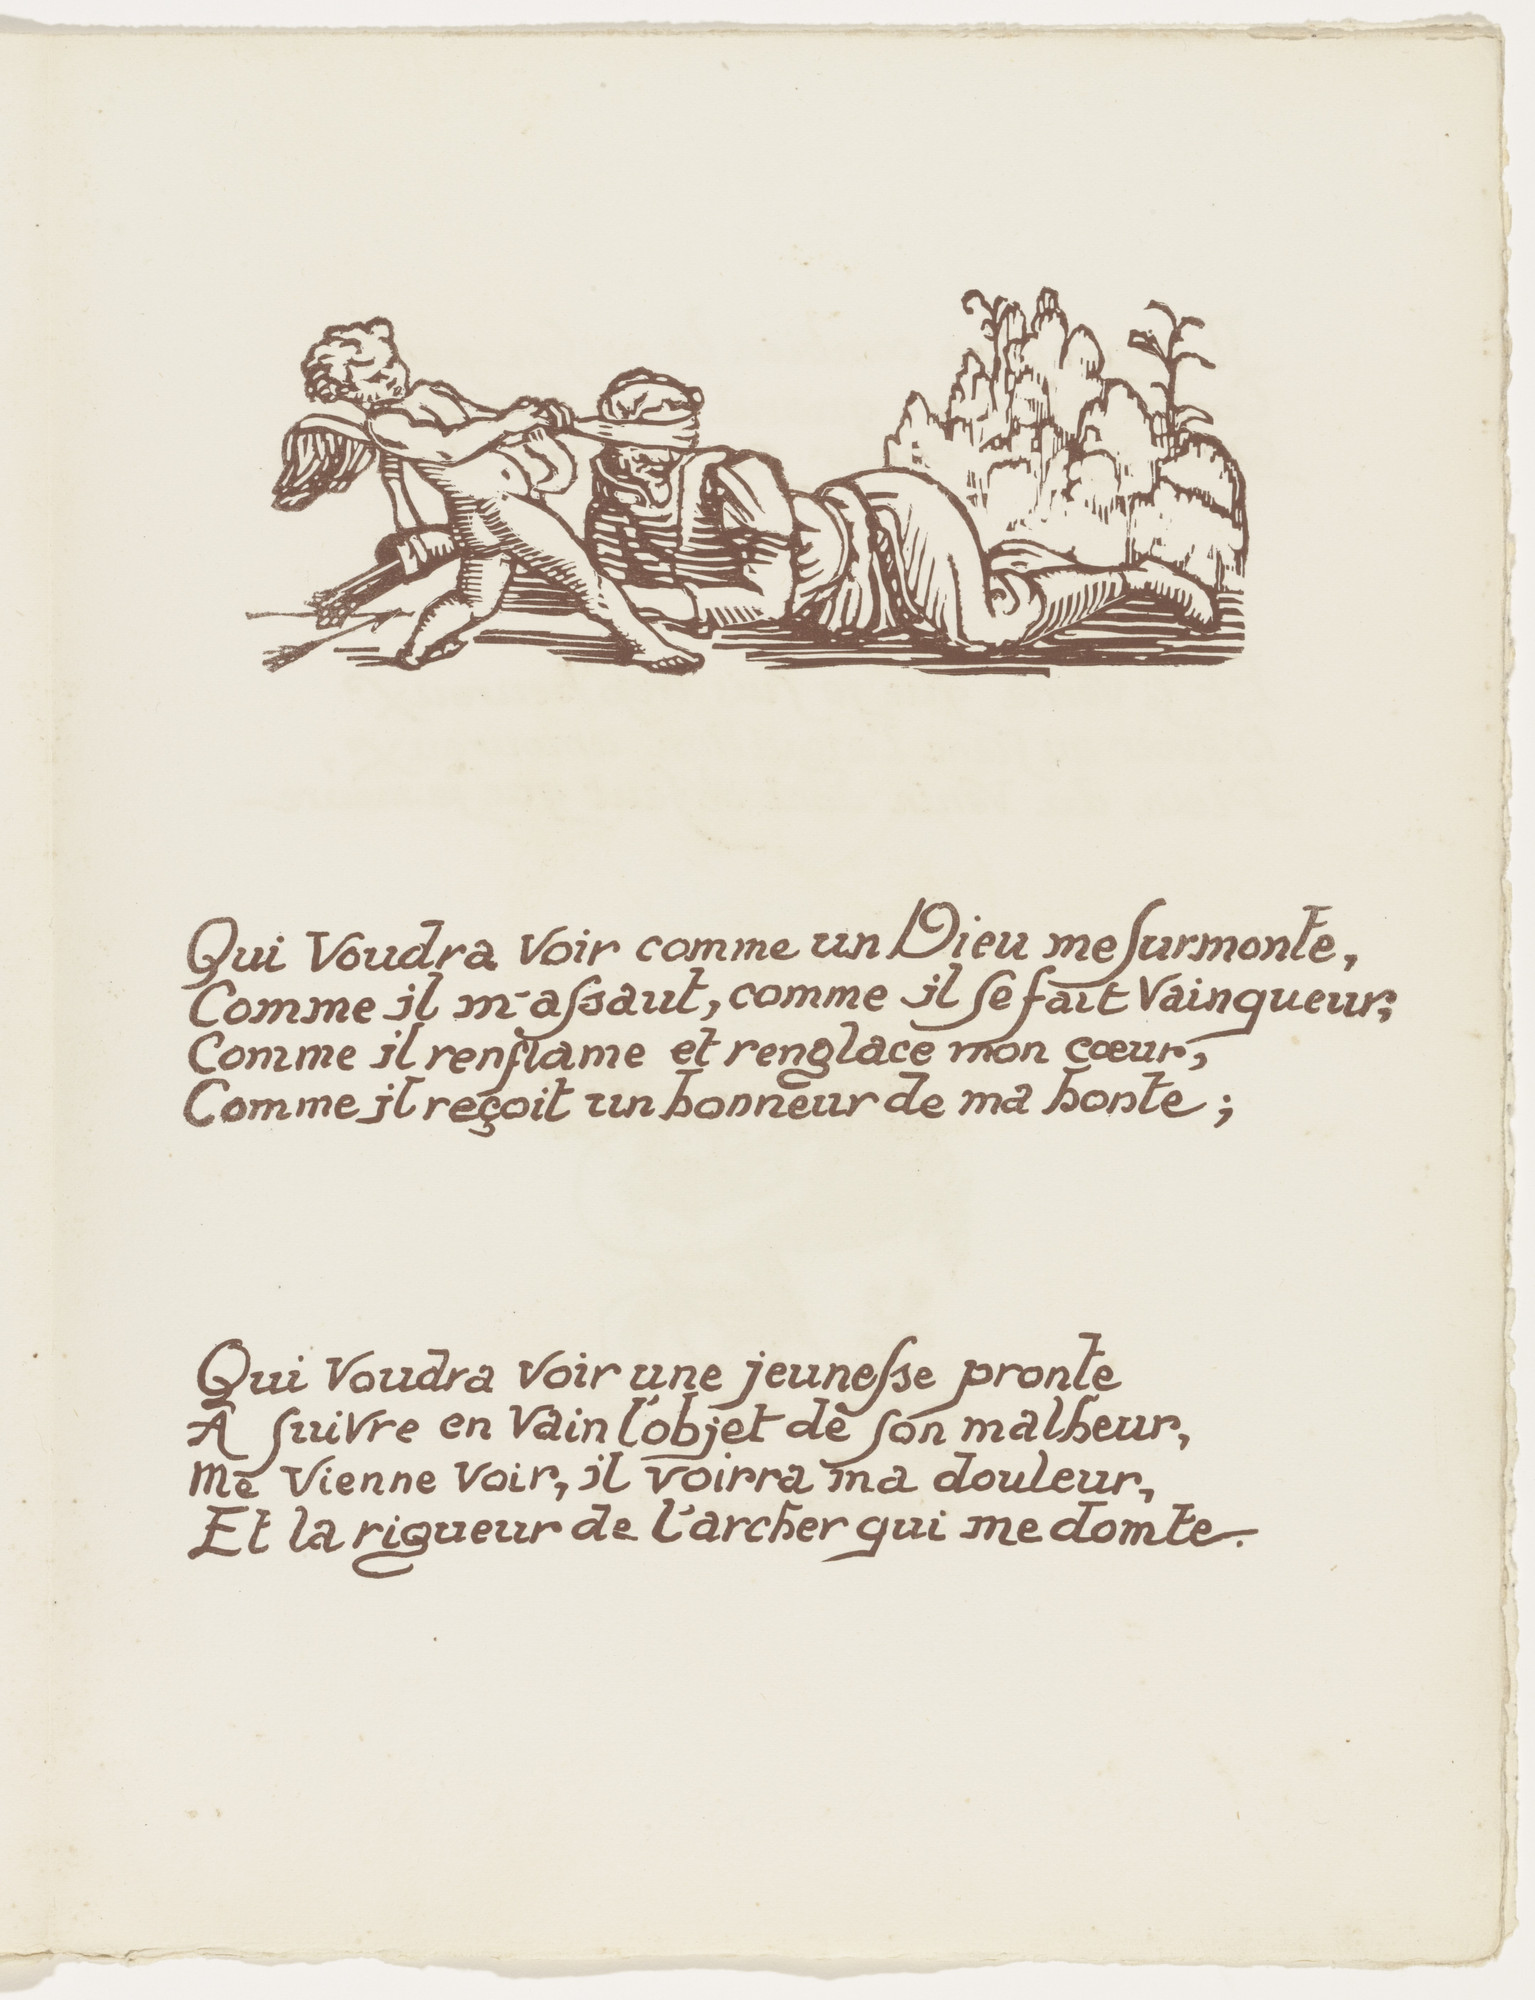 Qui voudra voir comme un Dieu me surmonte,
Comme il m'assaut, comme il se fait vainqueur;
Comme il renflame et renglace mon cœur,
Comme il reçoit un honneur de ma honte;
Qui voudra voir une jeunesse pronte
A suivre en vain l'objet de son malheur,
Me vienne voir, il voirra ma douleur,
Et la rigueur de l'archer qui me domte.